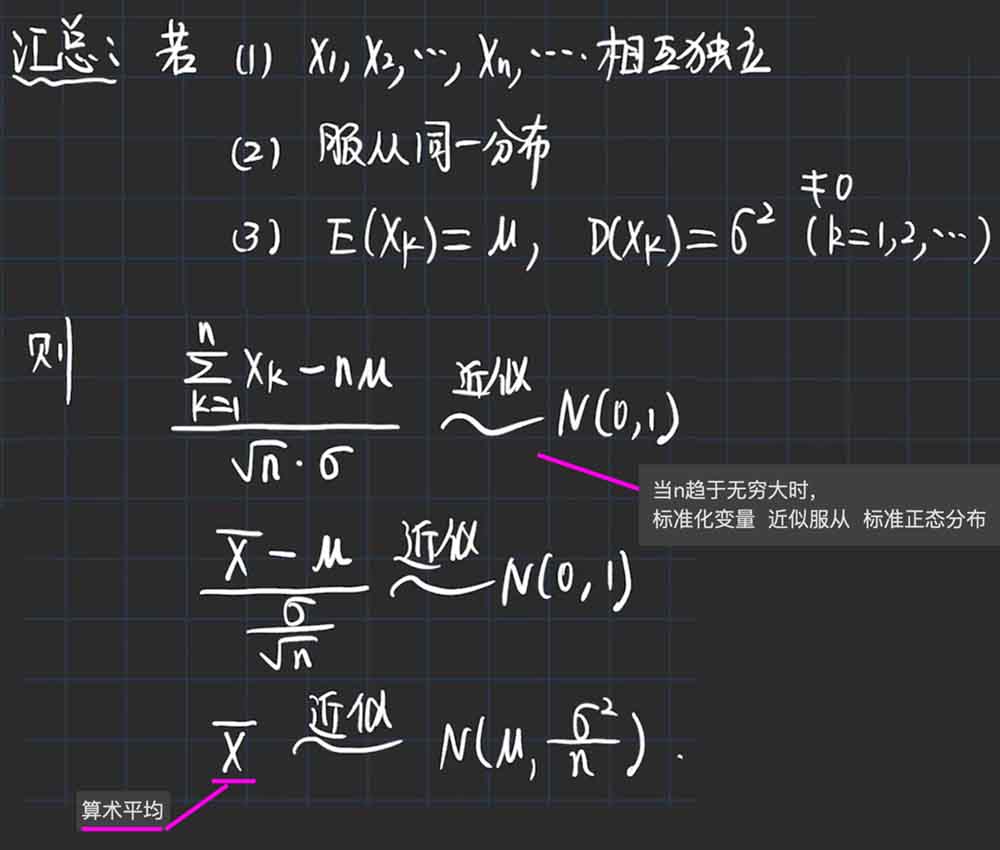 汇总: 若 (1) X₁, X₂, ⋯, Xₙ, ⋯. 相互独立
(2) 服从同一分布
(3) E(Xₖ)=μ, D(Xₖ)=σ² ≠0 (k=1,2,⋯)
则 (∑ₖ₌₁ⁿ Xₖ - nμ) / (√n · σ) 近似 ~ N(0,1)
当n趋于无穷大时,
标准化变量 近似服从 标准正态分布
(X̅ - μ) / (σ/√n) 近似 ~ N(0,1)
X̅ 近似 ~ N(μ, σ²/n).
算术平均